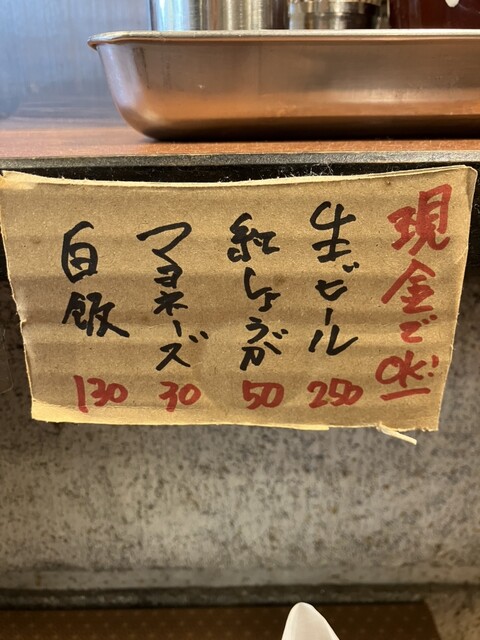 現金でOK!
生ビール 250
紅しょうが 50
マヨネーズ 30
白飯 130